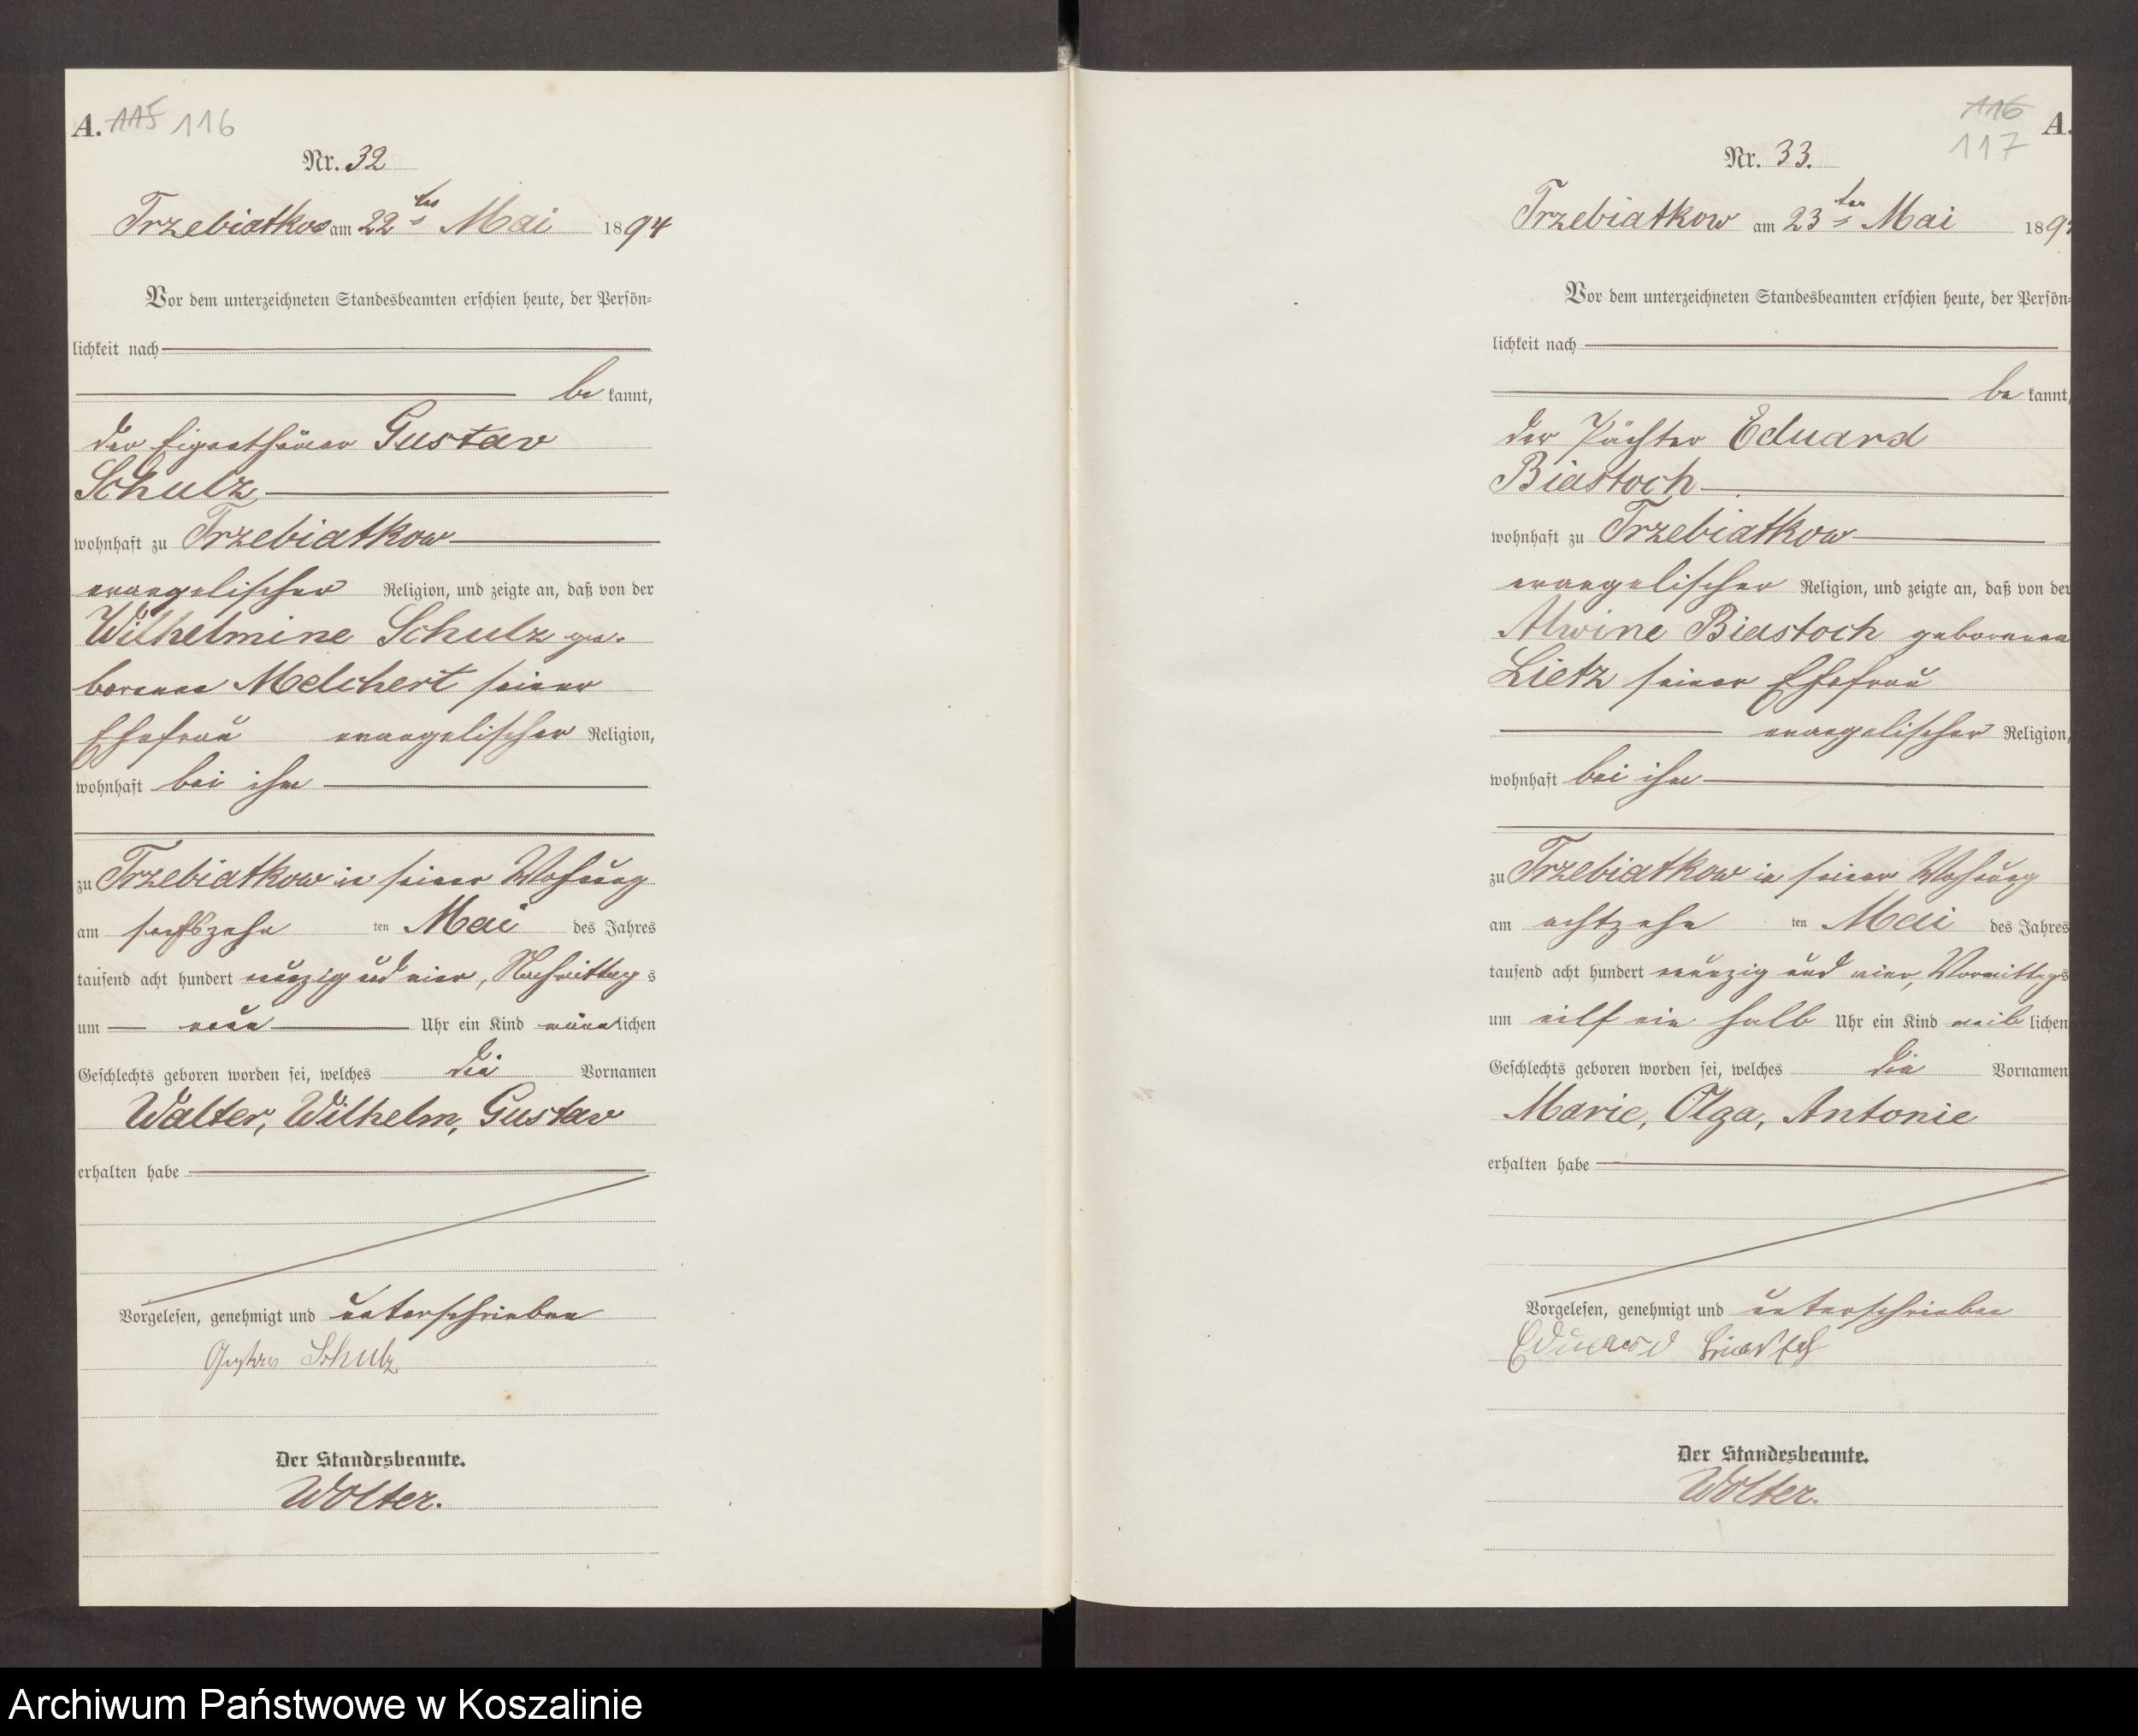 A. 115 116
Nr. 32
Trzebiatkow am 22ten Mai 1894
Vor dem unterzeichneten Standesbeamten erschien heute, der Persön-
lichkeit nach
be kannt,
der Eigenthümer Gustav
Schulz
wohnhaft zu Trzebiatkow
evangelischer Religion, und zeigte an, daß von der
Wilhelmine Schulz ge-
borenen Melchert seiner
Ehefrau evangelischer Religion,
wohnhaft bei ihm
zu Trzebiatkow in seiner Wohnung
am sechszehn ten Mai des Jahres
tausend acht hundert neunzig und vier, Nachmittag s
um neun Uhr ein Kind männlichen
Geschlechts geboren worden sei, welches die Vornamen
Walter, Wilhelm, Gustav
erhalten habe
Vorgelesen, genehmigt und unterschrieben
Gustav Schulz
Der Standesbeamte.
Wolter.
116 A.
117
Nr. 33.
Trzebiatkow am 23ten Mai 1894
Vor dem unterzeichneten Standesbeamten erschien heute, der Persön-
lichkeit nach
be kannt,
der Pächter Eduard
Biastoch
wohnhaft zu Trzebiatkow
evangelischer Religion, und zeigte an, daß von der
Alwine Biastoch geborenen
Lietz seiner Ehefrau
evangelischer Religion,
wohnhaft bei ihm
zu Trzebiatkow in seiner Wohnung
am achtzehn ten Mai des Jahres
tausend acht hundert neunzig und vier, Vormittags
um eilf ein halb Uhr ein Kind weib lichen
Geschlechts geboren worden sei, welches die Vornamen
Marie, Olga, Antonie
erhalten habe
Vorgelesen, genehmigt und unterschrieben
Eduard Biastoch
Der Standesbeamte.
Wolter.
Archiwum Państwowe w Koszalinie